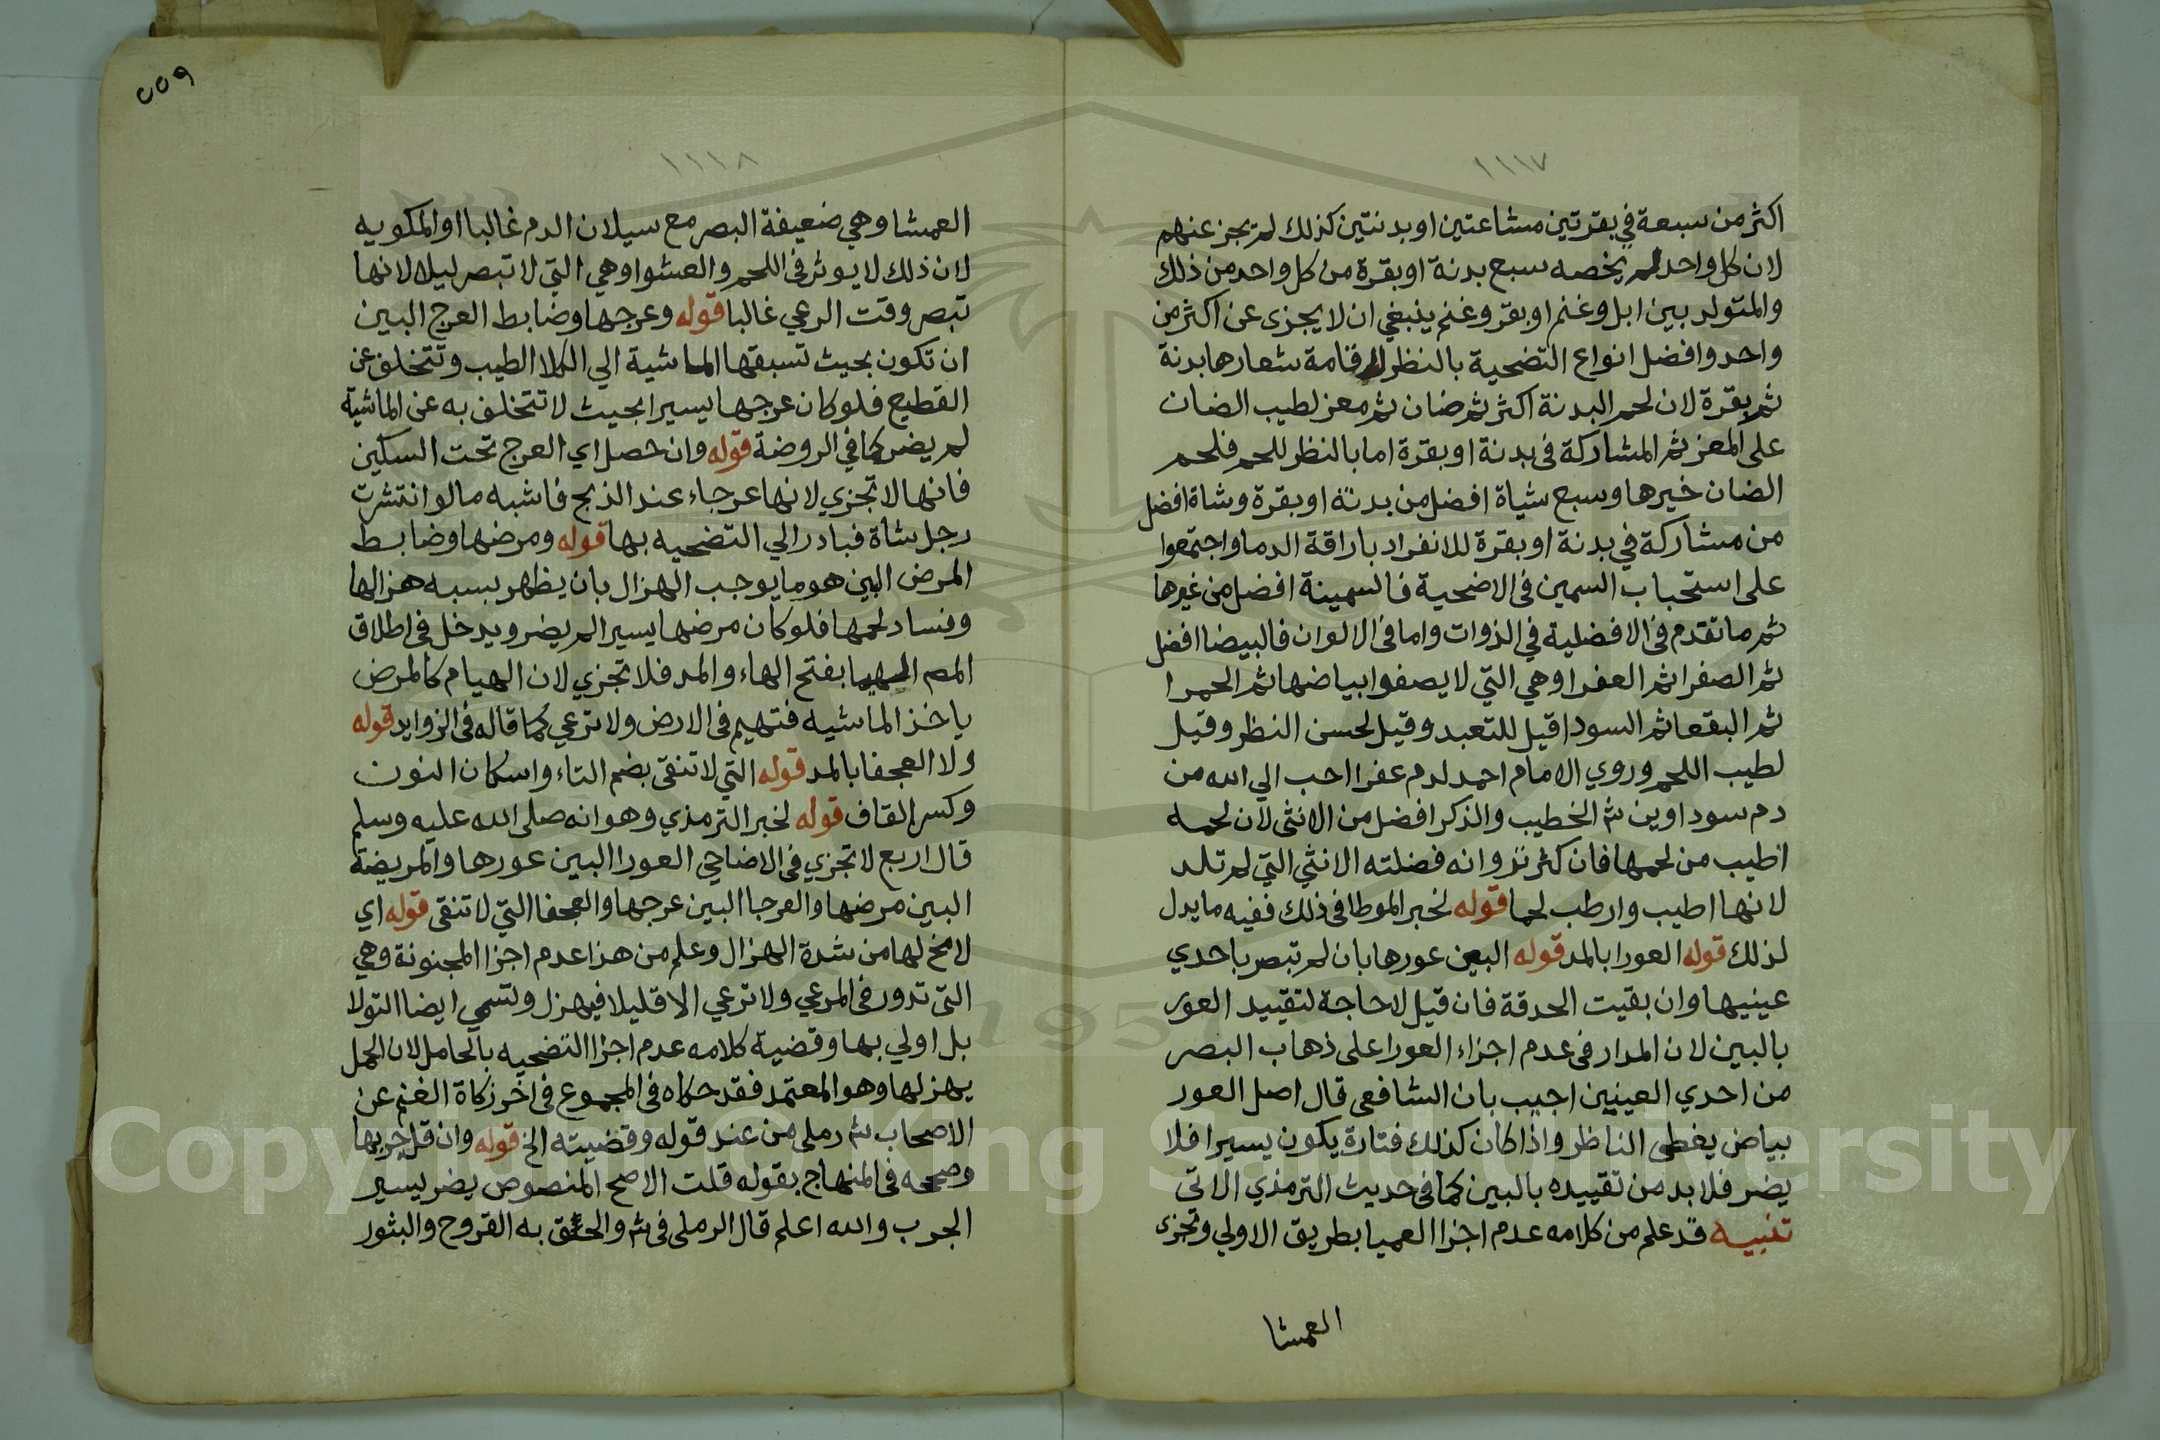 ١١١٧
اكثر من سبعة في بقرتين مشاعتين او بدنتين كذلك لم يجز عنهم
لان كل واحد لم يخصه سبع بدنة او بقرة من كل واحد من ذلك
والمتولد بين ابل وغنم او بقر وغنم ينبغي ان لا يجزى عن اكثر من
واحد وافضل انواع التضحية بالنظر لاقامة شعارها بدنة
ثم بقرة لان لحم البدنة اكثر ثم ضان ثم معز لطيب الضان
على المعز ثم المشاركة في بدنة او بقرة اما بالنظر للحم فلحم
الضان خيرها وسبع شياة افضل من بدنة او بقرة وشاة افضل
من مشاركة في بدنة او بقرة للانفراد باراقة الدم واجتمعوا
على استحباب السمين في الاضحية فالسمينة افضل من غيرها
ثم ما تقدم في الافضلية في الذوات واما في الالوان فالبيضا افضل
ثم الصفرا ثم العفرا وهي التي لا يصفوا بياضها ثم الحمرا
ثم البقعا ثم السودا قيل للتعبد وقيل لحسن النظر وقيل
لطيب اللحم وروي الامام احمد لدم عفرا احب الي الله من
دم سوداوين ش الخطيب والذكر افضل من الانثى لان لحمه
اطيب من لحمها فان كثر نزوانه فضلته الانثي التي لم تلد
لانها اطيب وارطب لحما قوله لخبر الموطا في ذلك ففيه ما يدل
لذلك قوله العورا بالمد قوله البين عورها بان لم تبصر باحدي
عينيها وان بقيت الحدقة فان قيل لا حاجة لتقييد العور
بالبين لان المدار في عدم اجزاء العورا على ذهاب البصر
من احدي العينين اجيب بان الشافعى قال اصل العور
بياض يغطى الناظر واذا كان كذلك فتارة يكون يسيرا فلا
يضر فلا بد من تقييده بالبين كما في حديث الترمذي الاتى
تنبيه قد علم من كلامه عدم اجزا العميا بطريق الاولي وتجزى
العمشا
٥٥٩
١١١٨
العمشا وهي ضعيفة البصر مع سيلان الدم غالبا او المكويه
لان ذلك لا يوثر في اللحم والعشوا وهي التي لا تبصر ليلا لانها
تبصر وقت الرعي غالبا قوله وعرجها وضابط العرج البين
ان تكون بحيث تسبقها الماشية الي الكلا الطيب وتتخلف عن
القطيع فلو كان عرجها يسيرا بحيث لا تتخلف به عن الماشية
لم يضر كما في الروضة قوله وان حصل اي العرج تحت السكين
فانها لا تجزي لانها عرجاء عند الذبح فاشبه ما لو انتشرت
رجل شاة فبادر الي التضحيه بها قوله ومرضها وضابط
المرض البين هو ما يوجب الهزال بان يظهر بسببه هزالها
وفساد لحمها فلو كان مرضها يسيرا لم يضر ويدخل في اطلاق
المص الهيما بفتح الهاء والمد فلا تجزي لان الهيام كالمرض
ياخذ الماشيه فتهيم في الارض ولا ترعي كما قاله في الزوايد قوله
ولا العجفا بالمد قوله التي لا تنقى بضم التاء واسكان النون
وكسر القاف قوله لخبر الترمذي وهو انه صلى الله عليه وسلم
قال اربع لا تجزي في الاضاحي العورا البين عورها والمريضة
البين مرضها والعرجا البين عرجها والعجفا التي لا تنقى قوله اي
لا مخ لها من شدة الهزال وعلم من هذا عدم اجزا المجنونة وهي
التي تدور في المرعي ولا ترعي الا قليلا فيهزل وتسمي ايضا التولا
بل اولي بها وقضية كلامه عدم اجزا التضحيه بالحامل لان الحمل
يهزلها وهو المعتمد فقد حكاه في المجموع في اخر زكاة الغنم عن
الاصحاب ش رملى من عند قوله وقضيته الخ قوله وان قل جربها
وصححه في المنهاج بقوله قلت الاصح المنصوص يضر يسير
الجرب والله اعلم قال الرملى في ش والحق به القروح والبثور